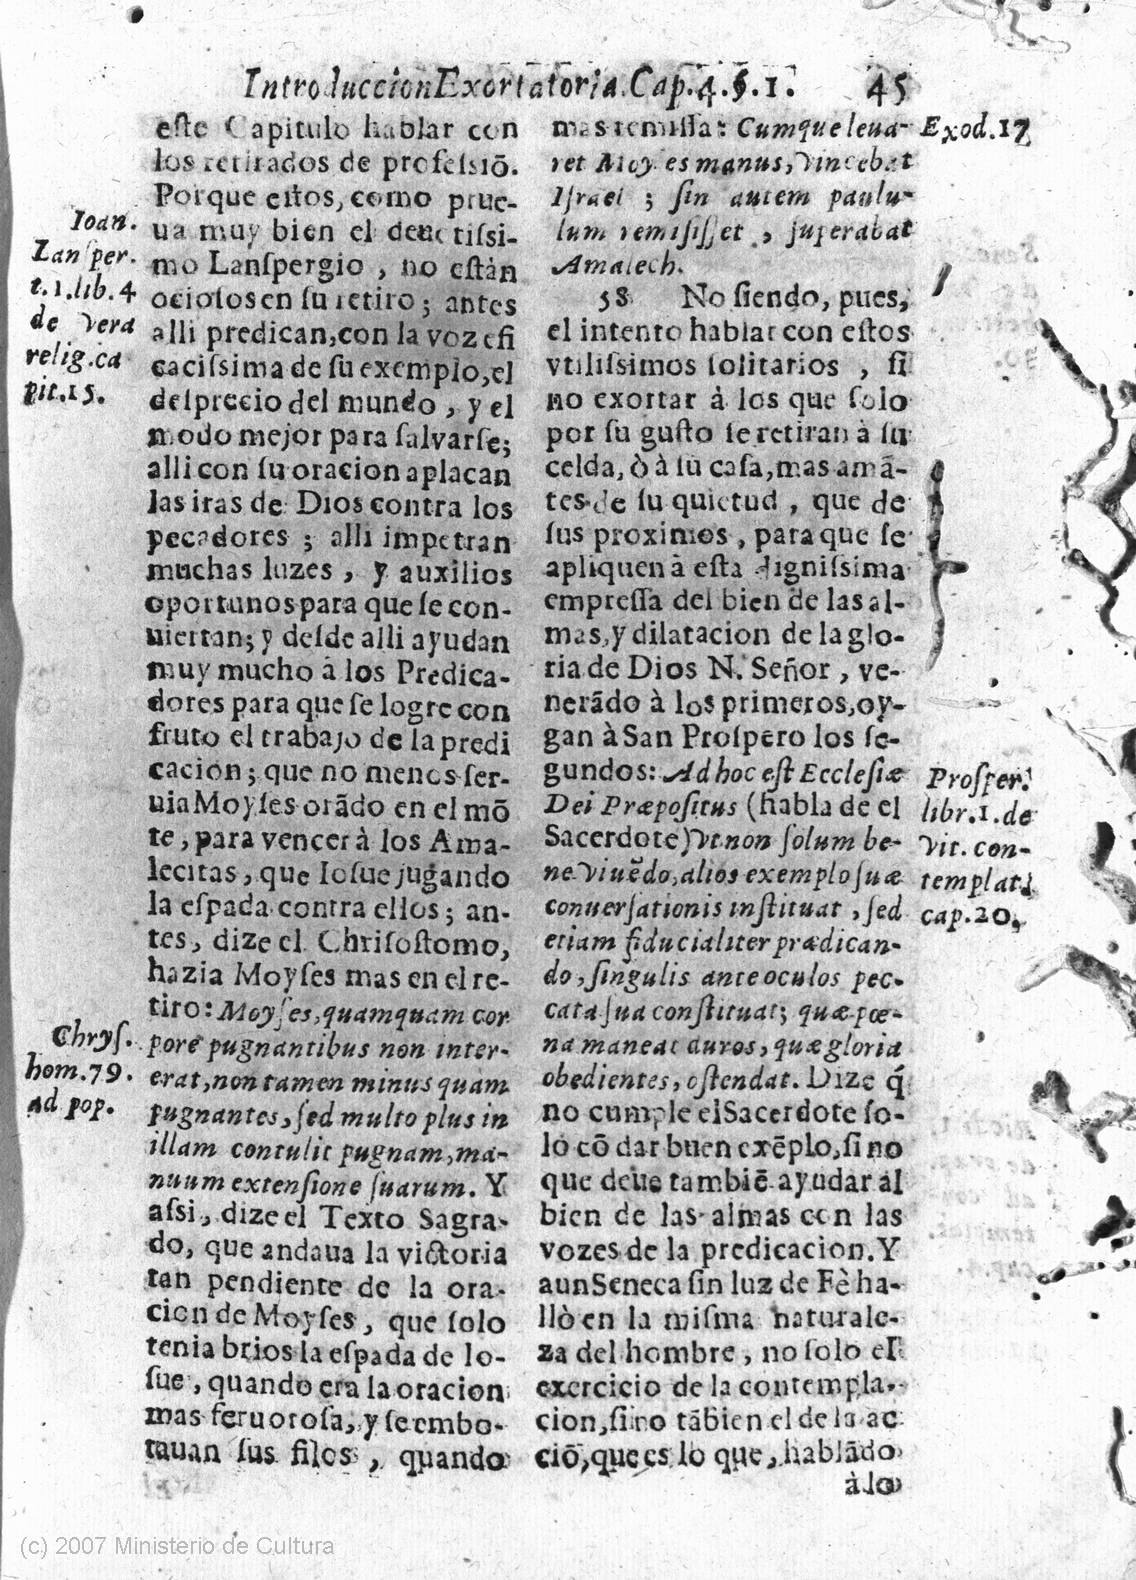 Introduccion Exortatoria. Cap. 4. §. 1. 45
este Capitulo hablar con
los retirados de professiõ.
Porque estos, como prue-
ua muy bien el deuotissi-
mo Lanspergio, no estàn
ociosos en su retiro; antes
alli predican, con la voz efi
cacissima de su exemplo, el
desprecio del mundo, y el
modo mejor para salvarse;
alli con su oracion aplacan
las iras de Dios contra los
pecadores; alli impetran
muchas luzes, y auxilios
oportunos para que se con-
uiertan; y desde alli ayudan
muy mucho à los Predica-
dores para que se logre con
fruto el trabajo de la predi
cacion; que no menos ser-
uia Moyses orãdo en el mõ
te, para vencer à los Ama-
lecitas, que Iosue jugando
la espada contra ellos; an-
tes, dize el Chrisostomo,
hazia Moyses mas en el re-
tiro: Moyses, quamquam cor
pore pugnantibus non inter-
erat, non tamen minus quam
pugnantes, sed multo plus in
illam contulit pugnam, ma-
nuum extensione suarum. Y
assi, dize el Texto Sagra-
do, que andaua la victoria
tan pendiente de la ora-
cion de Moyses, que solo
tenia brios la espada de Io-
sue, quando era la oracion
mas feruorosa, y se embo-
tauan sus filos, quando
Ioan.
Lansper.
t. 1. lib. 4
de vera
relig. ca
pit. 15.
Chrys.
hom. 79.
ad pop.
mas remissa: Cumque leua-
ret Moyses manus, vincebat
Israel; sin autem paulu-
lum remisisset, superabat
Amalech.
58 No siendo, pues,
el intento hablar con estos
vtilissimos solitarios, si
no exortar à los que solo
por su gusto se retiran à su
celda, ò à su casa, mas amã-
tes de su quietud, que de
sus proximos, para que se
apliquen à esta dignissima
empressa del bien de las al-
mas, y dilatacion de la glo-
ria de Dios N. Señor, ve-
nerãdo à los primeros, oy-
gan à San Prospero los se-
gundos: Ad hoc est Ecclesiæ
Dei Præpositus (habla de el
Sacerdote) vt non solum be-
ne viuẽdo, alios exemplo suæ
conuersationis instituat, sed
etiam fiducialiter prædican-
do, singulis ante oculos pec-
cata sua constituat; quæ pœ-
na maneat duros, quæ gloria
obedientes, ostendat. Dize q̃
no cumple el Sacerdote so-
lo cõ dar buen exẽplo, si no
que deue tambiẽ ayudar al
bien de las almas con las
vozes de la predicacion. Y
aun Seneca sin luz de Fè ha-
llò en la misma naturale-
za del hombre, no solo el
exercicio de la contempla-
cion, sino tãbien el de la ac
ciõ, que es lo que, hablãdo
à lo
Exod. 17
Prosper.
libr. 1. de
vit. con-
templat.
cap. 20.
(c) 2007 Ministerio de Cultura